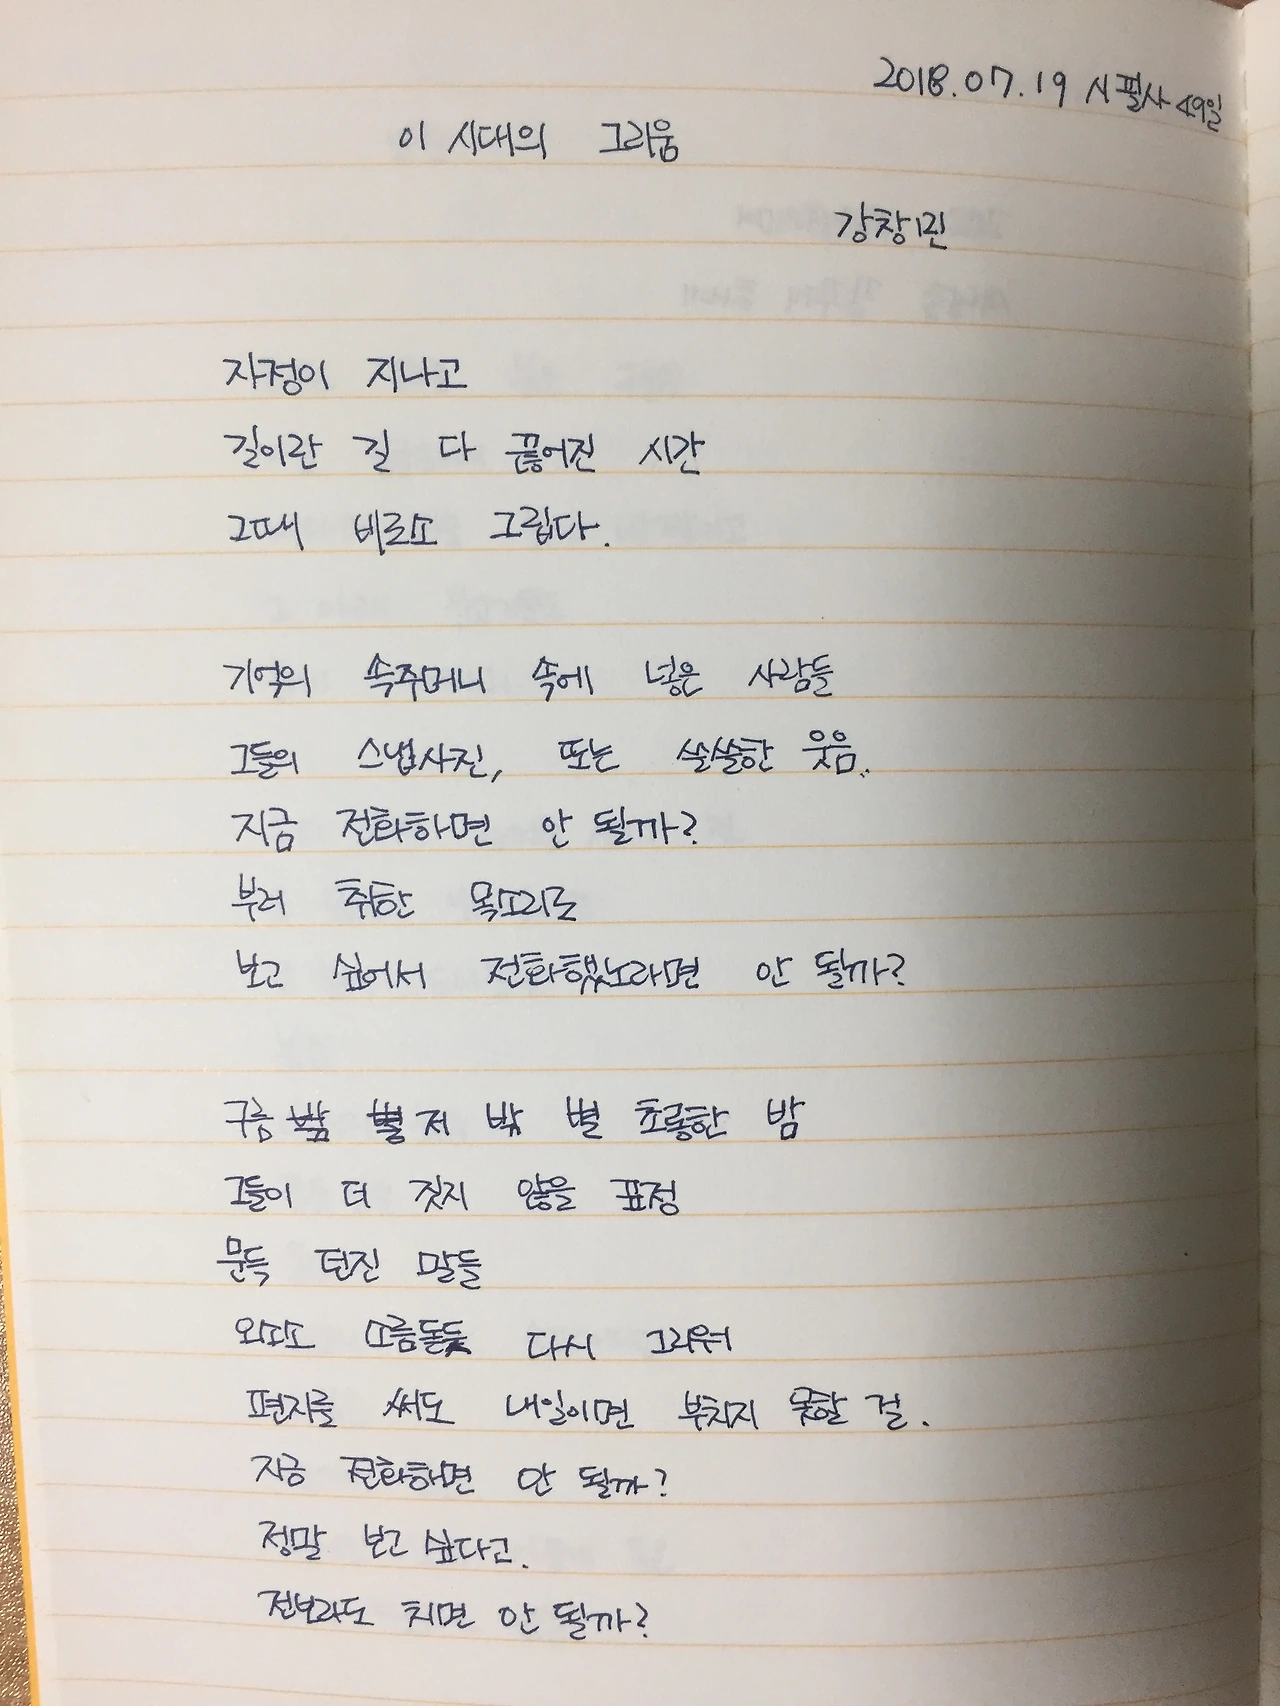 2018.07.19 시필사 49일
이 시대의 그리움
강창민
자정이 지나고
길이란 길 다 끊어진 시간
그때 비로소 그립다.
기억의 속주머니 속에 넣은 사람들
그들의 스냅사진, 또는 쓸쓸한 웃음..
지금 전화하면 안 될까?
부러 취한 목소리로
보고 싶어서 전화했노라면 안 될까?
구름 저 밖 별 초롱한 밤
그들이 더 짓지 않을 표정
문득 던진 말들
외따로 소름돋듯 다시 그리워
편지를 써도 내일이면 부치지 못할 걸.
지금 전화하면 안 될까?
정말 보고 싶다고.
전보라도 치면 안 될까?